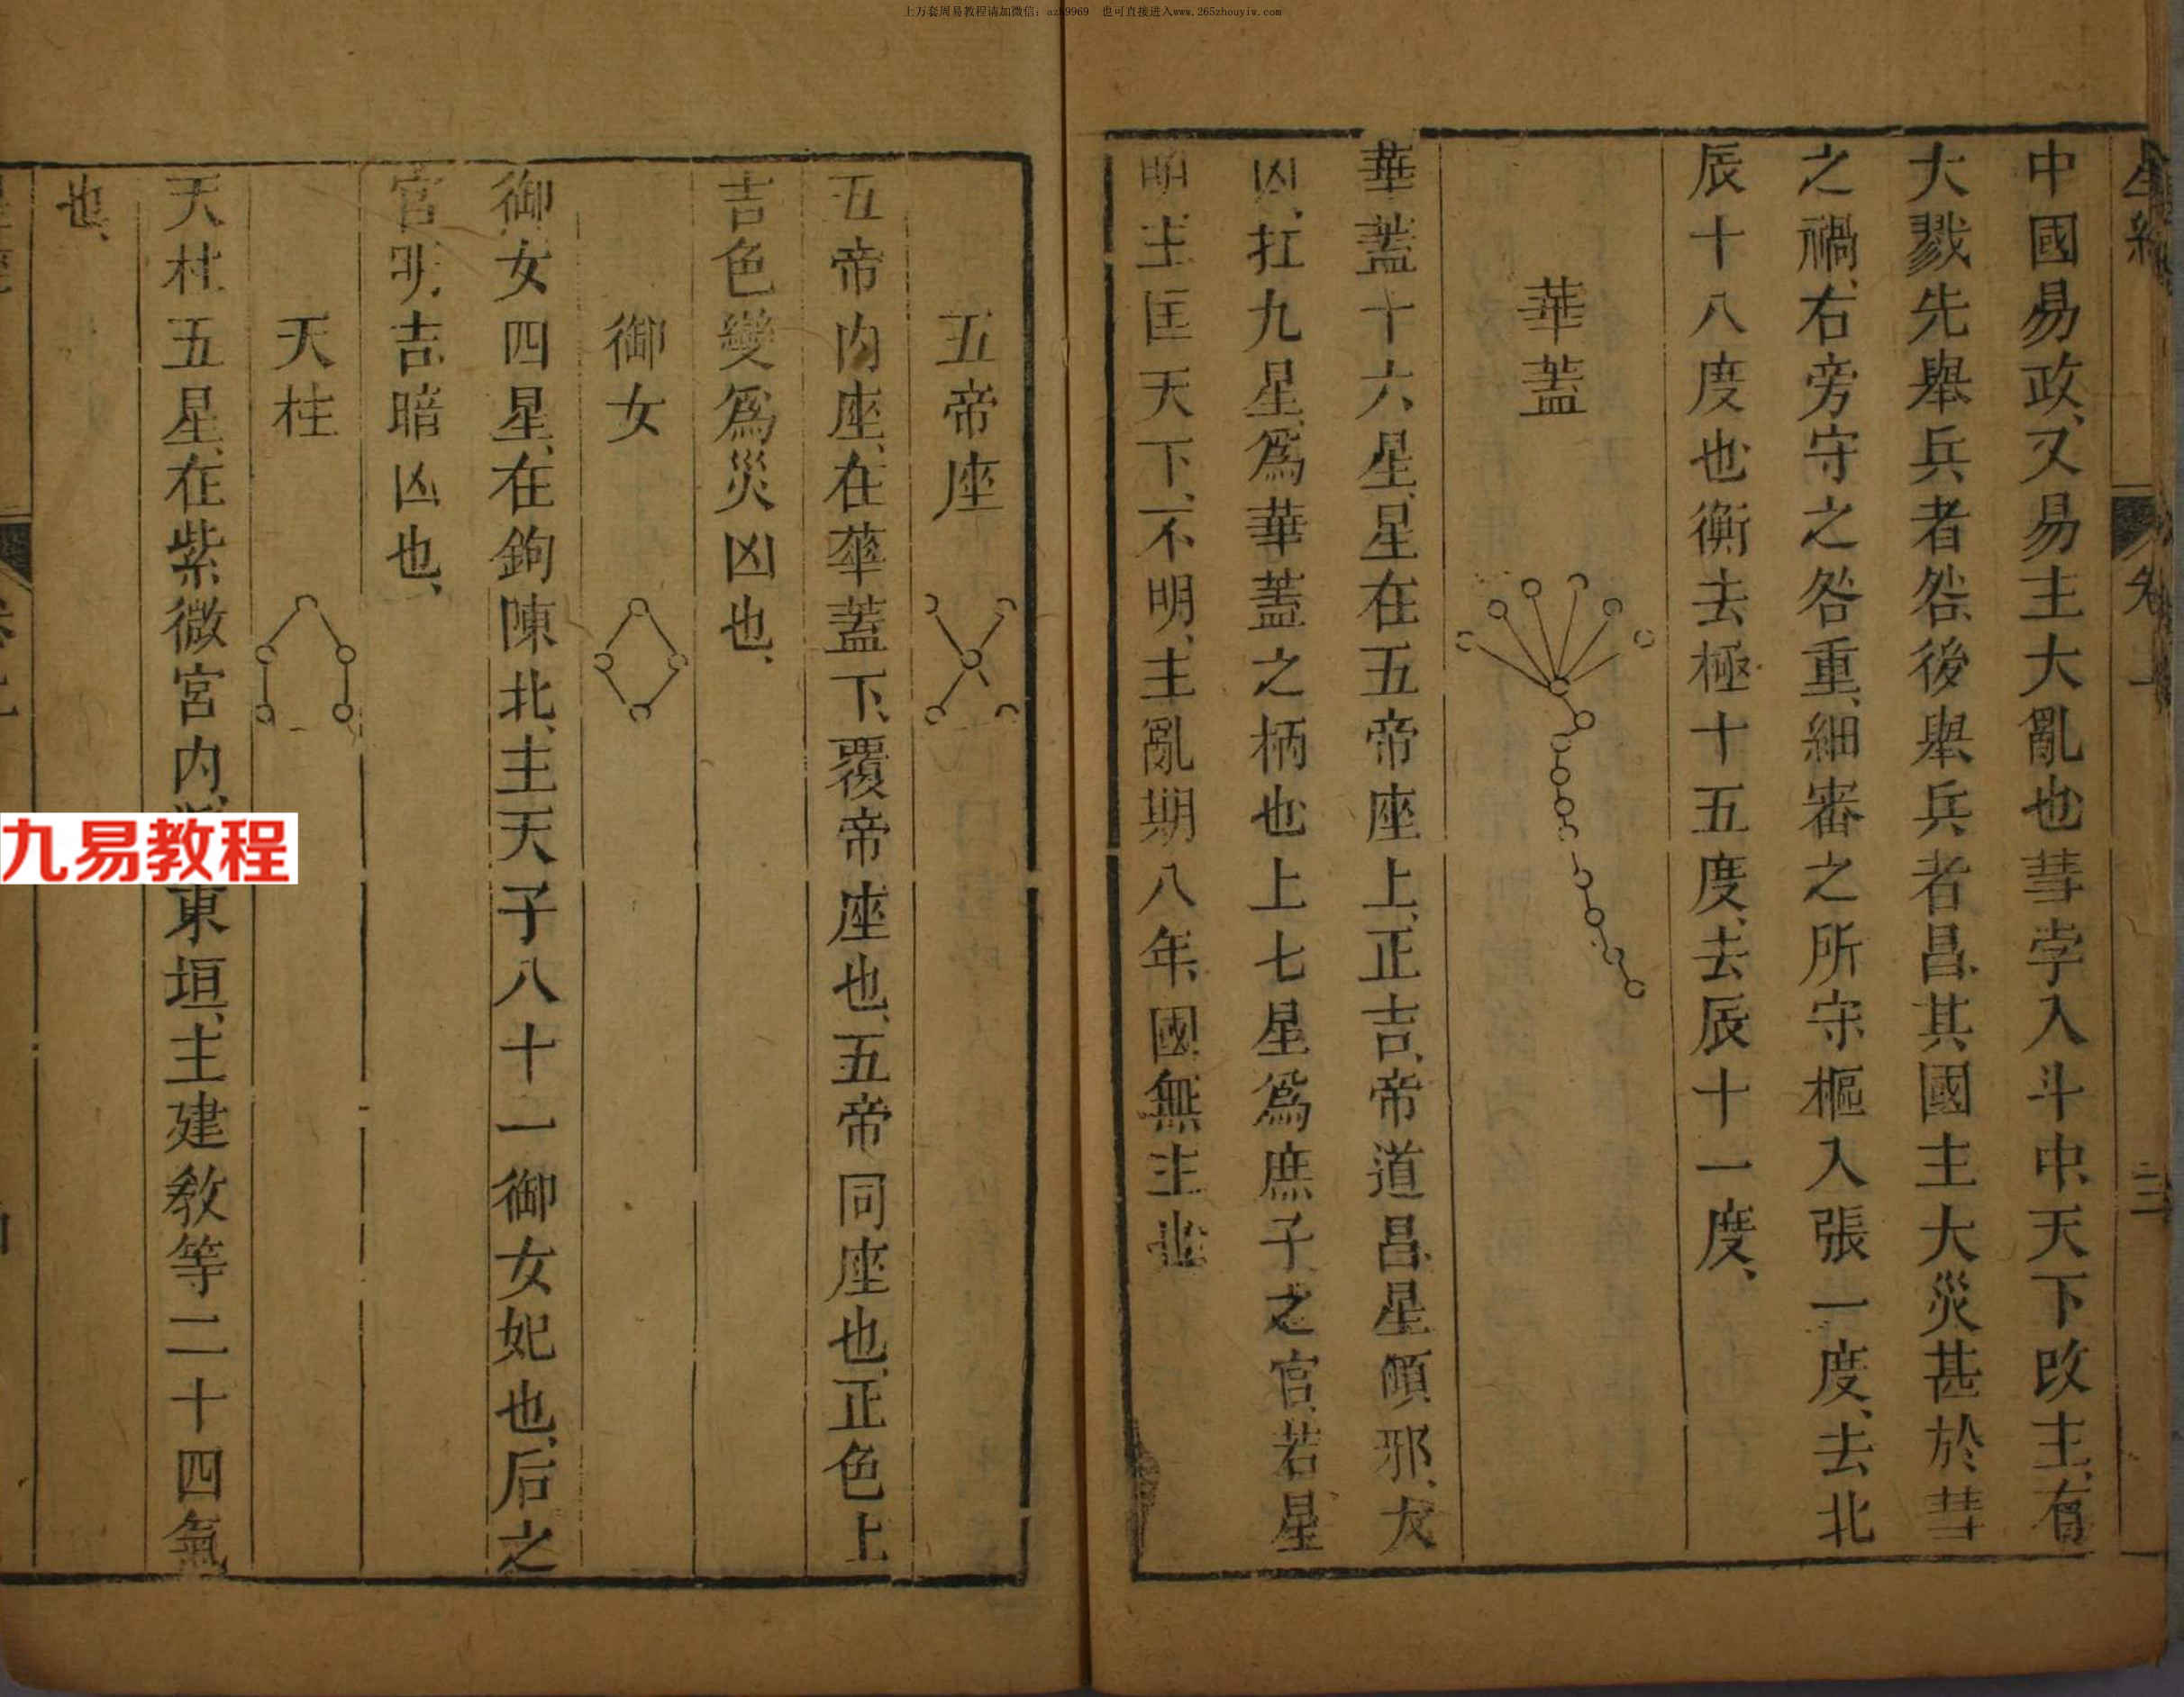 上万套周易教程请加微信：azh9969　也可直接进入www.265zhouyiw.com
星經
卷上
三
中國易政、又易主大亂也彗孛入斗中、天下改主、有
大戮先舉兵者咎、後舉兵者昌、其國主大災甚於彗
之禍、右旁守之咎重、細審之所守樞入張一度、去北
辰十八度也衡去極十五度、去辰十一度、
華蓋
華蓋十六星、星在五帝座上、正吉、帝道昌、星傾邪、大
凶、扛九星、爲華蓋之柄也上七星爲庶子之官、若星
明、主匡天下、不明、主亂期八年、國無主也
五帝座
五帝內座、在華蓋下、覆帝座也、五帝同座也、正色上
吉色變爲災凶也、
御女
御女四星、在鉤陳北、主天子八十一御女妃也、后之
官明、吉暗凶也、
天柱
天柱五星、在紫微宮內、東垣、主建教等二十四氣
也、
九易教程